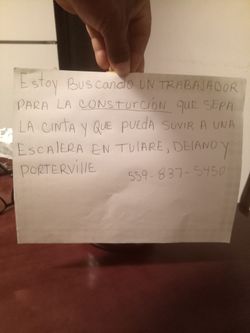 Estoy Buscando UN TRABAJADOR
PARA LA CONSTURCIÓN QUE SEPA
LA CINTA Y QUE PUEDA SUVIR A UNA
ESCALERA EN TULARE, DELANO Y
PORTERVILLE 559-837-5450